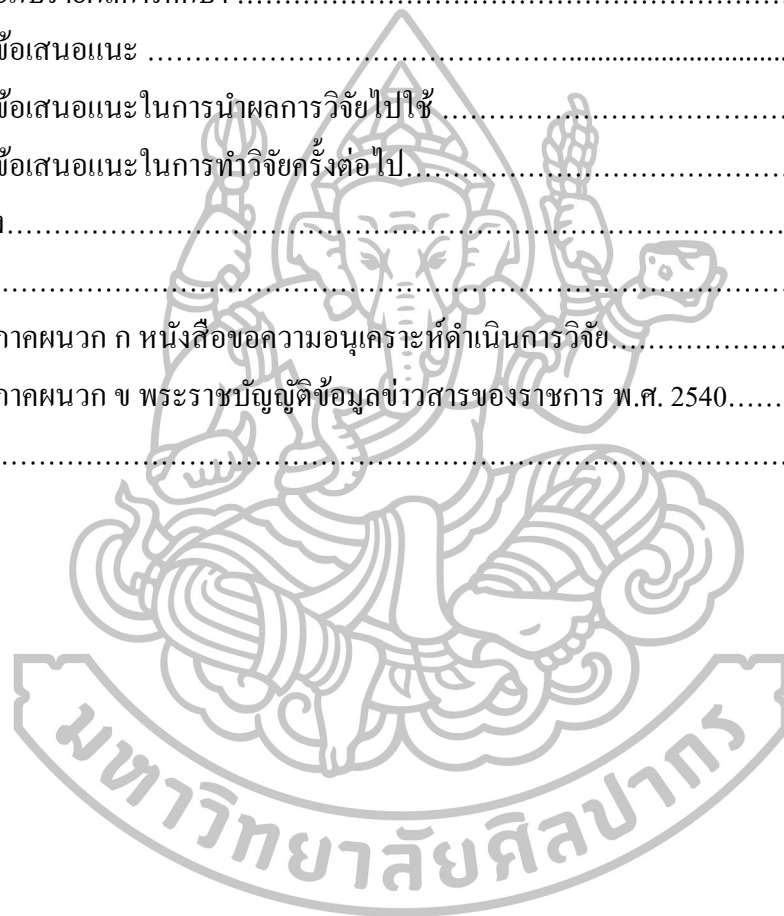 ข้อเสนอแนะ ……………………………………………...............................
ข้อเสนอแนะในการนำผลการวิจัยไปใช้ ……………………………
ข้อเสนอแนะในการทำวิจัยครั้งต่อไป……………………………………
………………………………………………………………………………
………………………………………………………………………………
ภาคผนวก ก หนังสือขอความอนุเคราะห์ดำเนินการวิจัย………………
ภาคผนวก ข พระราชบัญญัติข้อมูลข่าวสารของราชการ พ.ศ. 2540……
………………………………………………………………………………
มหาวิทยาลัยศิลปากร